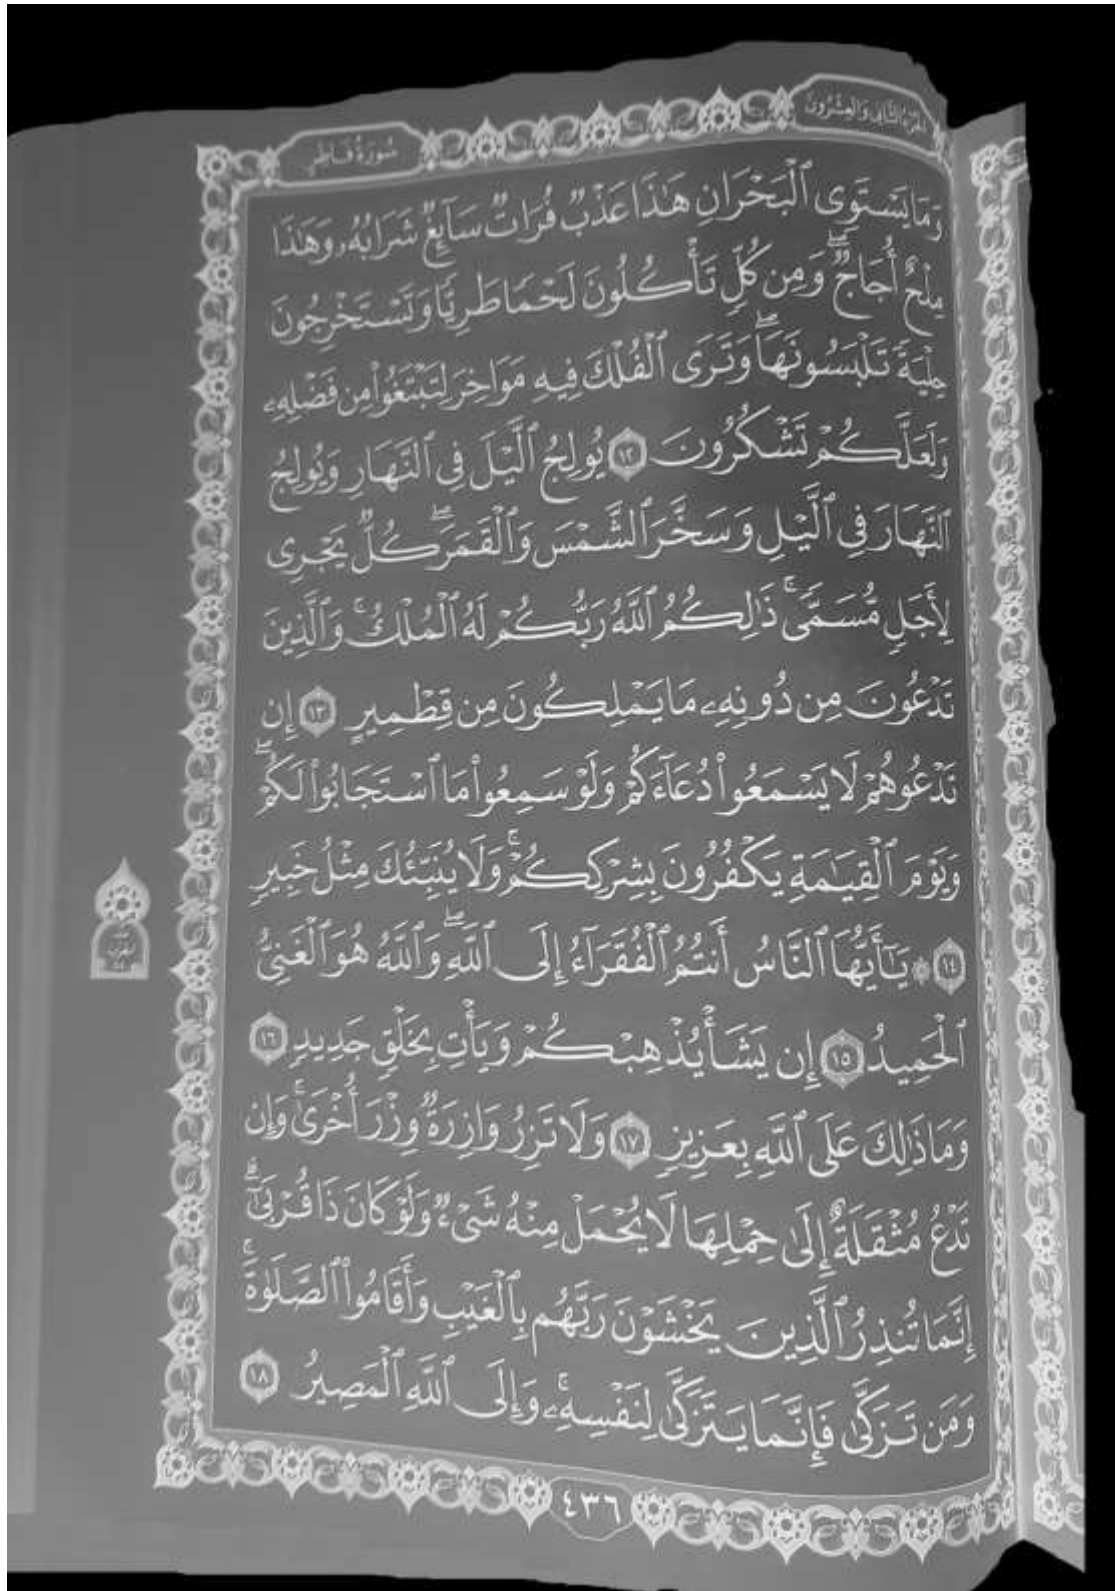 الجزء الثاني والعشرون
سورة فاطر
وَمَا يَسْتَوِى ٱلْبَحْرَانِ هَٰذَا عَذْبٌ فُرَاتٌ سَآئِغٌ شَرَابُهُۥ وَهَٰذَا
مِلْحٌ أُجَاجٌ ۖ وَمِن كُلٍّ تَأْكُلُونَ لَحْمًا طَرِيًّا وَتَسْتَخْرِجُونَ
حِلْيَةً تَلْبَسُونَهَا ۖ وَتَرَى ٱلْفُلْكَ فِيهِ مَوَاخِرَ لِتَبْتَغُوا۟ مِن فَضْلِهِۦ
وَلَعَلَّكُمْ تَشْكُرُونَ ١٢ يُولِجُ ٱلَّيْلَ فِى ٱلنَّهَارِ وَيُولِجُ
ٱلنَّهَارَ فِى ٱلَّيْلِ وَسَخَّرَ ٱلشَّمْسَ وَٱلْقَمَرَ ۖ كُلٌّ يَجْرِى
لِأَجَلٍ مُّسَمًّى ۚ ذَٰلِكُمُ ٱللَّهُ رَبُّكُمْ لَهُ ٱلْمُلْكُ ۚ وَٱلَّذِينَ
تَدْعُونَ مِن دُونِهِۦ مَا يَمْلِكُونَ مِن قِطْمِيرٍ ١٣ إِن
تَدْعُوهُمْ لَا يَسْمَعُوا۟ دُعَآءَكُمْ وَلَوْ سَمِعُوا۟ مَا ٱسْتَجَابُوا۟ لَكُمْ ۖ
وَيَوْمَ ٱلْقِيَٰمَةِ يَكْفُرُونَ بِشِرْكِكُمْ ۚ وَلَا يُنَبِّئُكَ مِثْلُ خَبِيرٍ
١٤ ۞ يَٰٓأَيُّهَا ٱلنَّاسُ أَنتُمُ ٱلْفُقَرَآءُ إِلَى ٱللَّهِ ۖ وَٱللَّهُ هُوَ ٱلْغَنِىُّ
ٱلْحَمِيدُ ١٥ إِن يَشَأْ يُذْهِبْكُمْ وَيَأْتِ بِخَلْقٍ جَدِيدٍ ١٦
وَمَا ذَٰلِكَ عَلَى ٱللَّهِ بِعَزِيزٍ ١٧ وَلَا تَزِرُ وَازِرَةٌ وِزْرَ أُخْرَىٰ ۚ وَإِن
تَدْعُ مُثْقَلَةٌ إِلَىٰ حِمْلِهَا لَا يُحْمَلْ مِنْهُ شَىْءٌ وَلَوْ كَانَ ذَا قُرْبَىٰٓ ۗ
إِنَّمَا تُنذِرُ ٱلَّذِينَ يَخْشَوْنَ رَبَّهُم بِٱلْغَيْبِ وَأَقَامُوا۟ ٱلصَّلَوٰةَ ۚ
وَمَن تَزَكَّىٰ فَإِنَّمَا يَتَزَكَّىٰ لِنَفْسِهِۦ ۚ وَإِلَى ٱللَّهِ ٱلْمَصِيرُ ١٨
٤٣٦